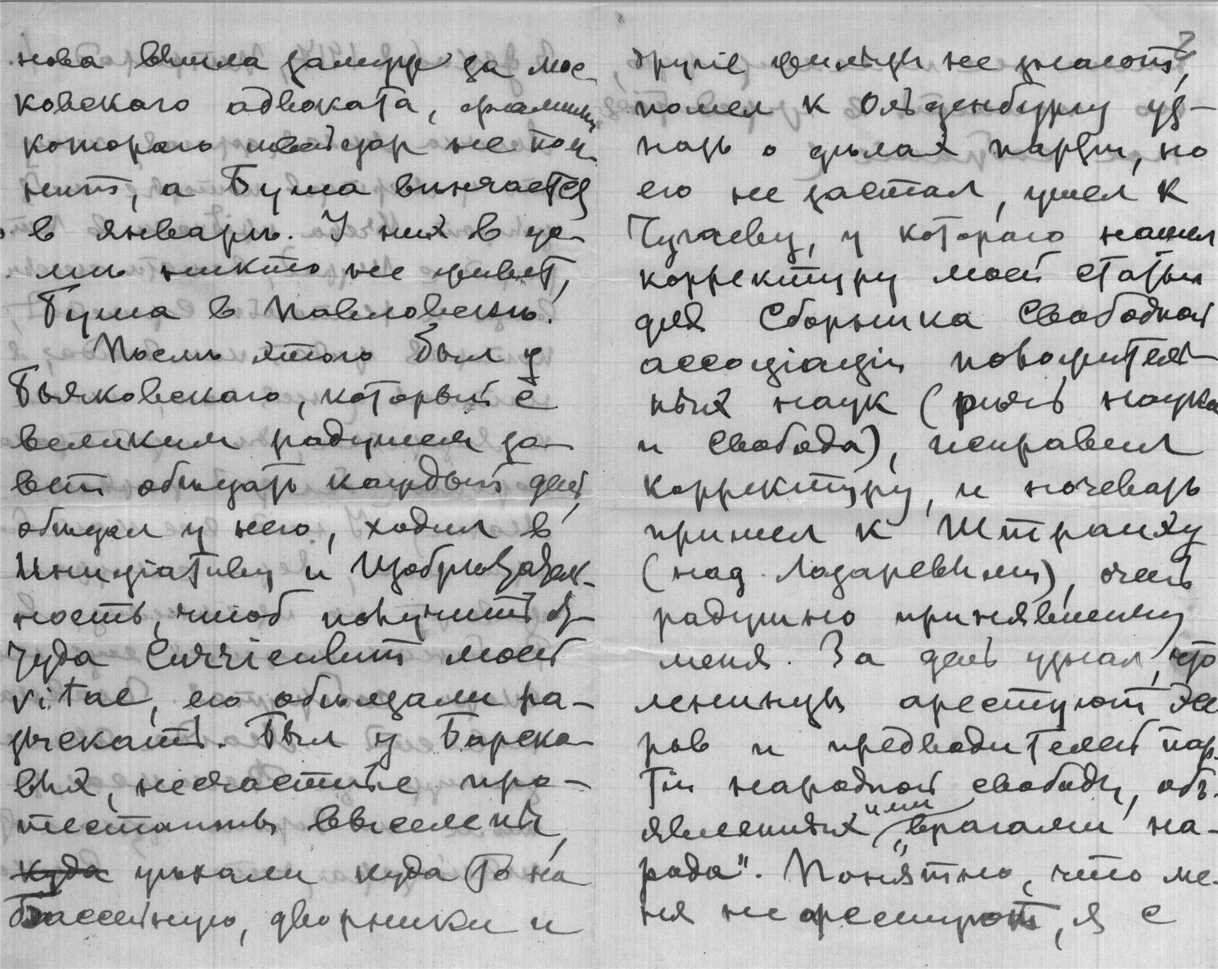 нова вышла замуж за мос-
ковскаго адвоката, фамилии
котораго швейцар не пом-
нит, а Буша винчается
в январь. У них в до-
мь никто не живет,
Буша в Павловскь.
Посль этого был у
Быховскаго, который с
великим радушием зо-
вет обьдать каждый день,
обьдал у него, ходил в
Инициативу и
ность, чтоб получить от-
туда Curriculum моей
vitae, его обьщали ра-
зыскать. Был у Барско-
вых, несчастные про-
тестанты выселены,
куда уьхали куда то на
Бассейную, дворники и
2
другие жильцы не знают,
пошел к Ольденбургу уз-
нать о дьлах партии, но
его не застал, ушел к
Чугаеву, у котораго нашел
корректуру моей статьи
для Сборника Свободной
ассоциации положитель-
ных наук (рьчь наука
и свобода), исправил
корректуру, и ночевать
пришел к Штрайху
(над Лазаревыми), очень
радушно принявшему
меня. За день узнал, что
ленинцы арестуют эсе-
ров и предводителей пар-
тии народной свободы, объ-
явленных ими „врагами на-
рода". Понятно, что ме-
ня не арестуют, я с